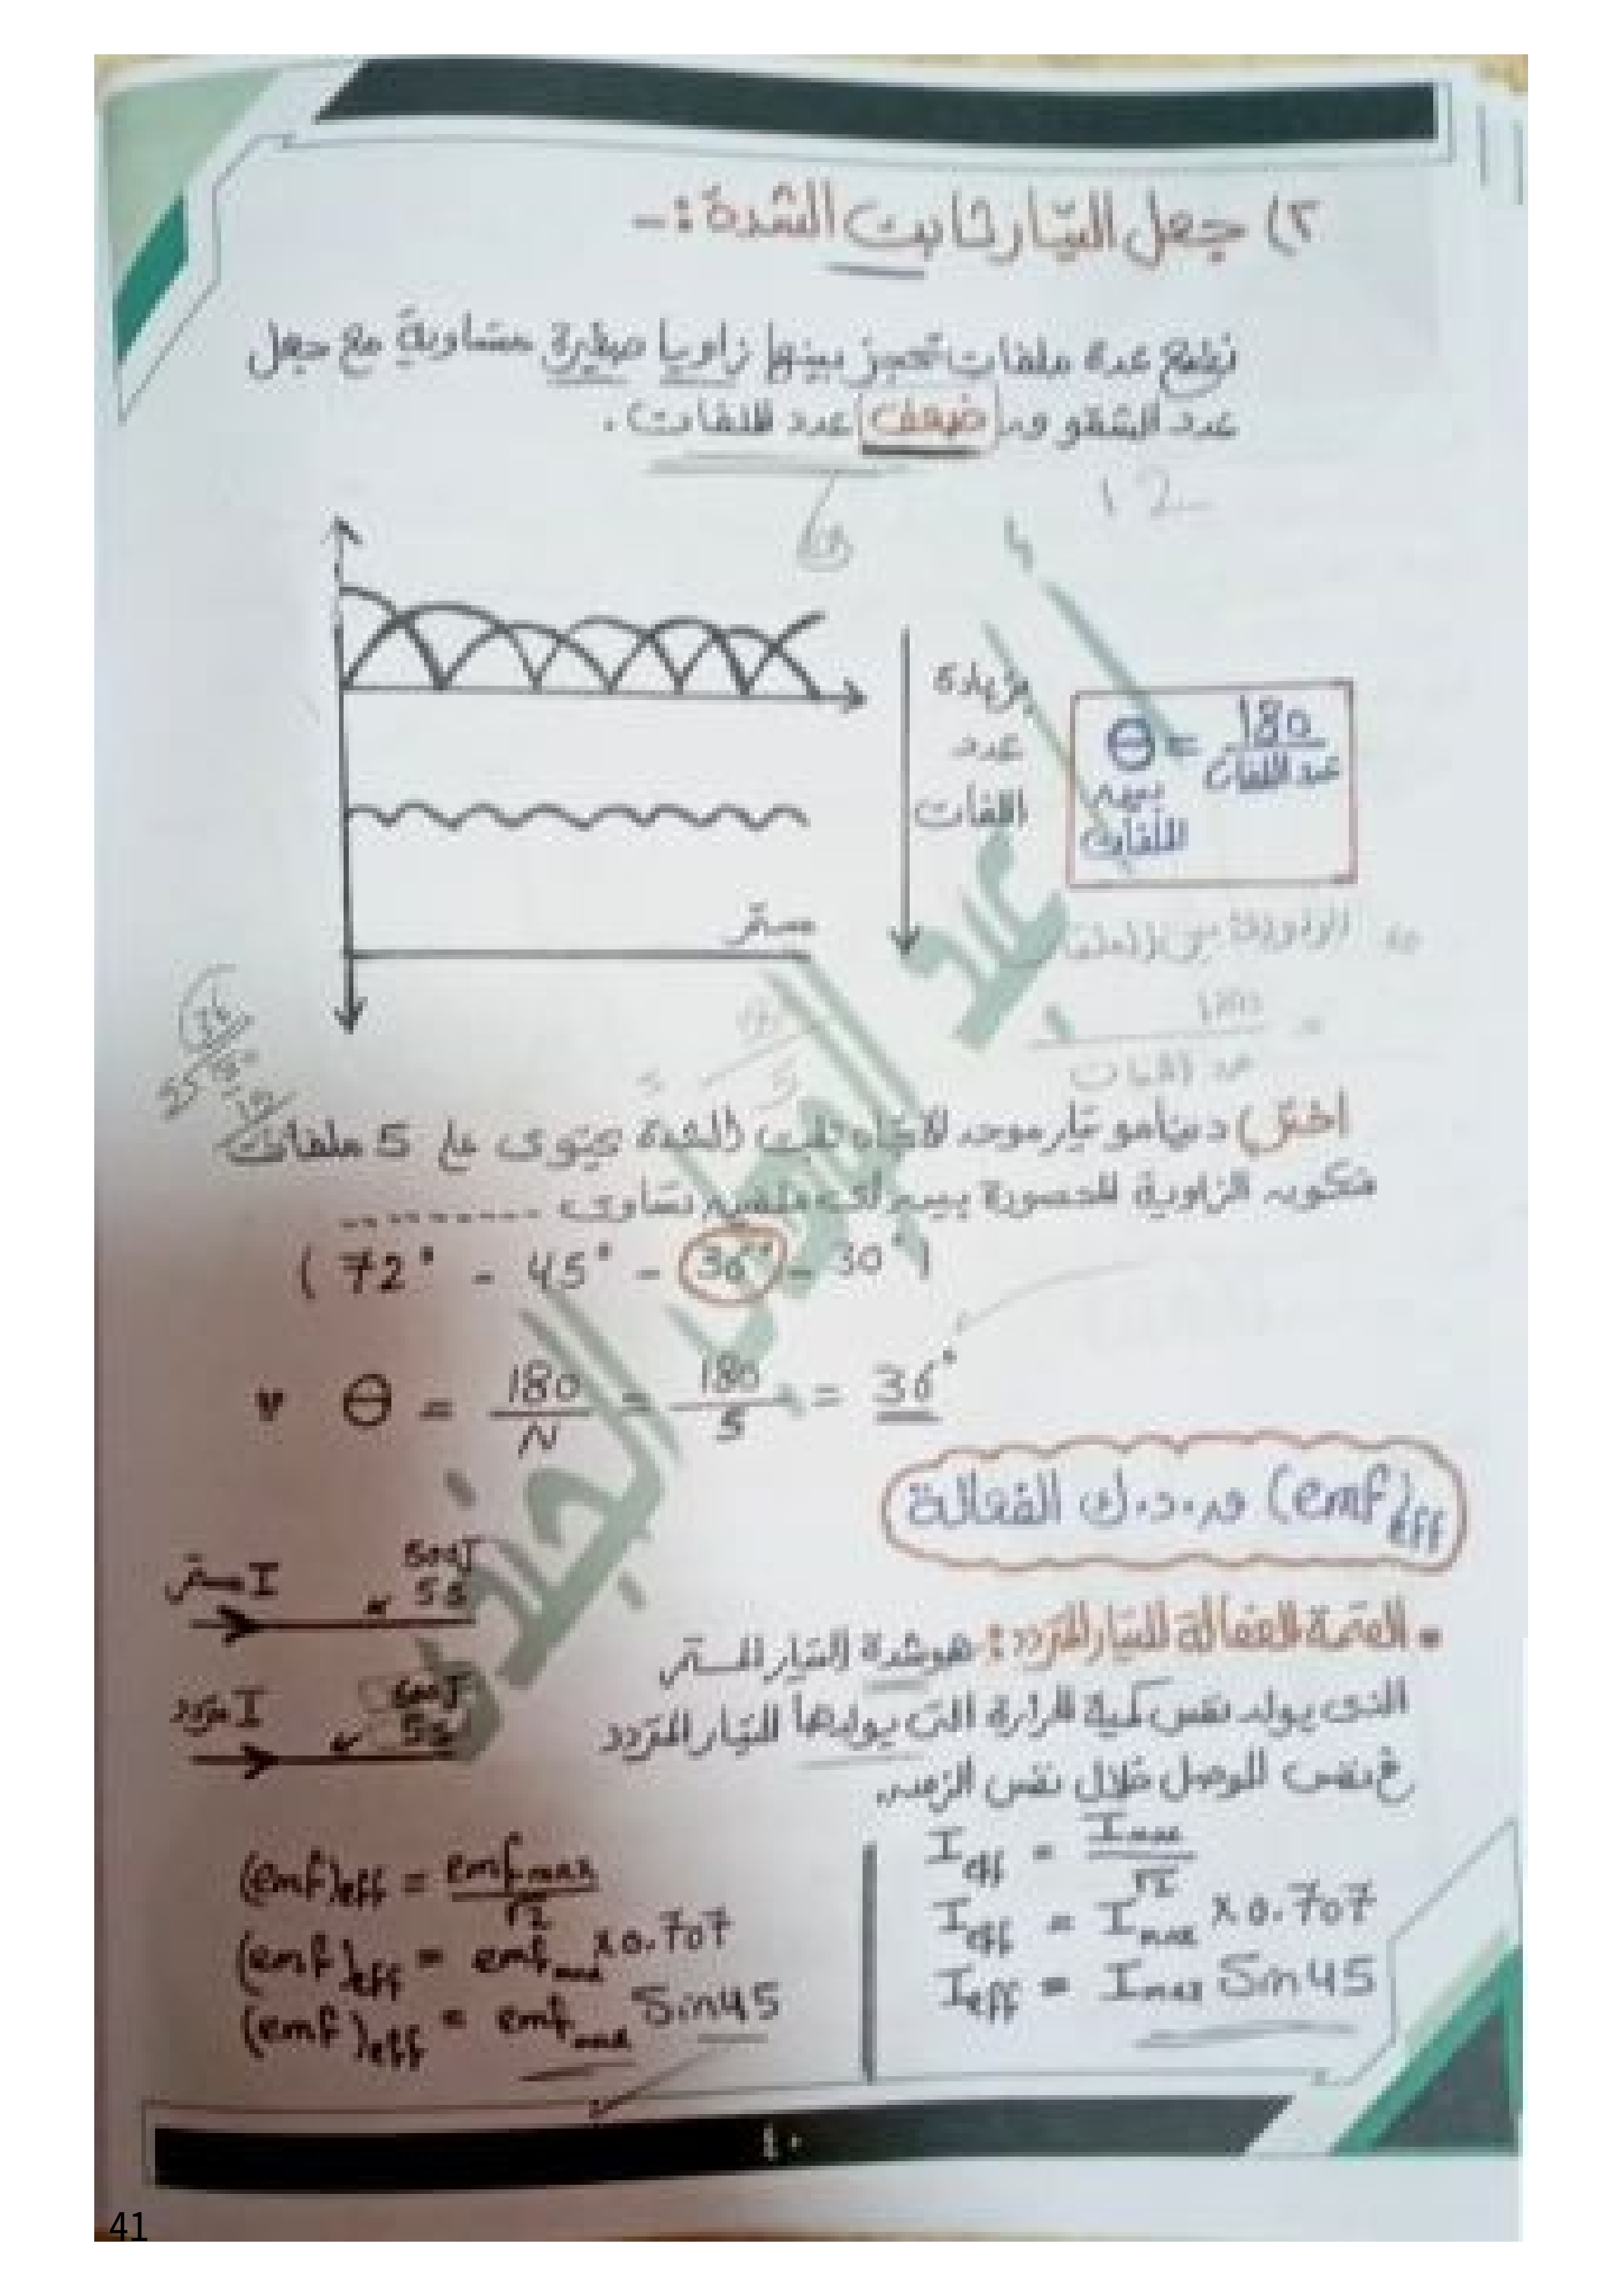 ٢) جعل التيار ثابت الشدة :-
نضع عدة ملفات تحجز بينها زاويا صغيرة متساوية مع جعل
عدد الشقوق ضعف عدد الملفات .
12
زيادة
عدد
اللفات
θ = 180
بين الملفات
عدد اللفات
مستمر
الزاوية بين الملفات
= 180
عدد الملفات
اختر) دينامو تيار موحد الاتجاه ثابت الشدة يحتوى على 5 ملفات
فتكون الزاوية المحصورة بين كل ملفين تساوى ----------
( 72° - 45° - 36° - 30° )
θ = 180/N = 180/5 = 36°
(emf)eff ق.د.ك الفعالة
• القيمة الفعالة للتيار المتردد :- هو شدة التيار المستمر
الذى يولد نفس كمية الحرارة التى يولدها التيار المتردد
فى نفس الموصل خلال نفس الزمن.
I مستمر
5s
I متردد
5s
Ieff = Imax/√2
Ieff = Imax x 0.707
Ieff = Imax Sin45
(emf)eff = emfmax/√2
(emf)eff = emfmax x 0.707
(emf)eff = emfmax Sin45
٤٠
41